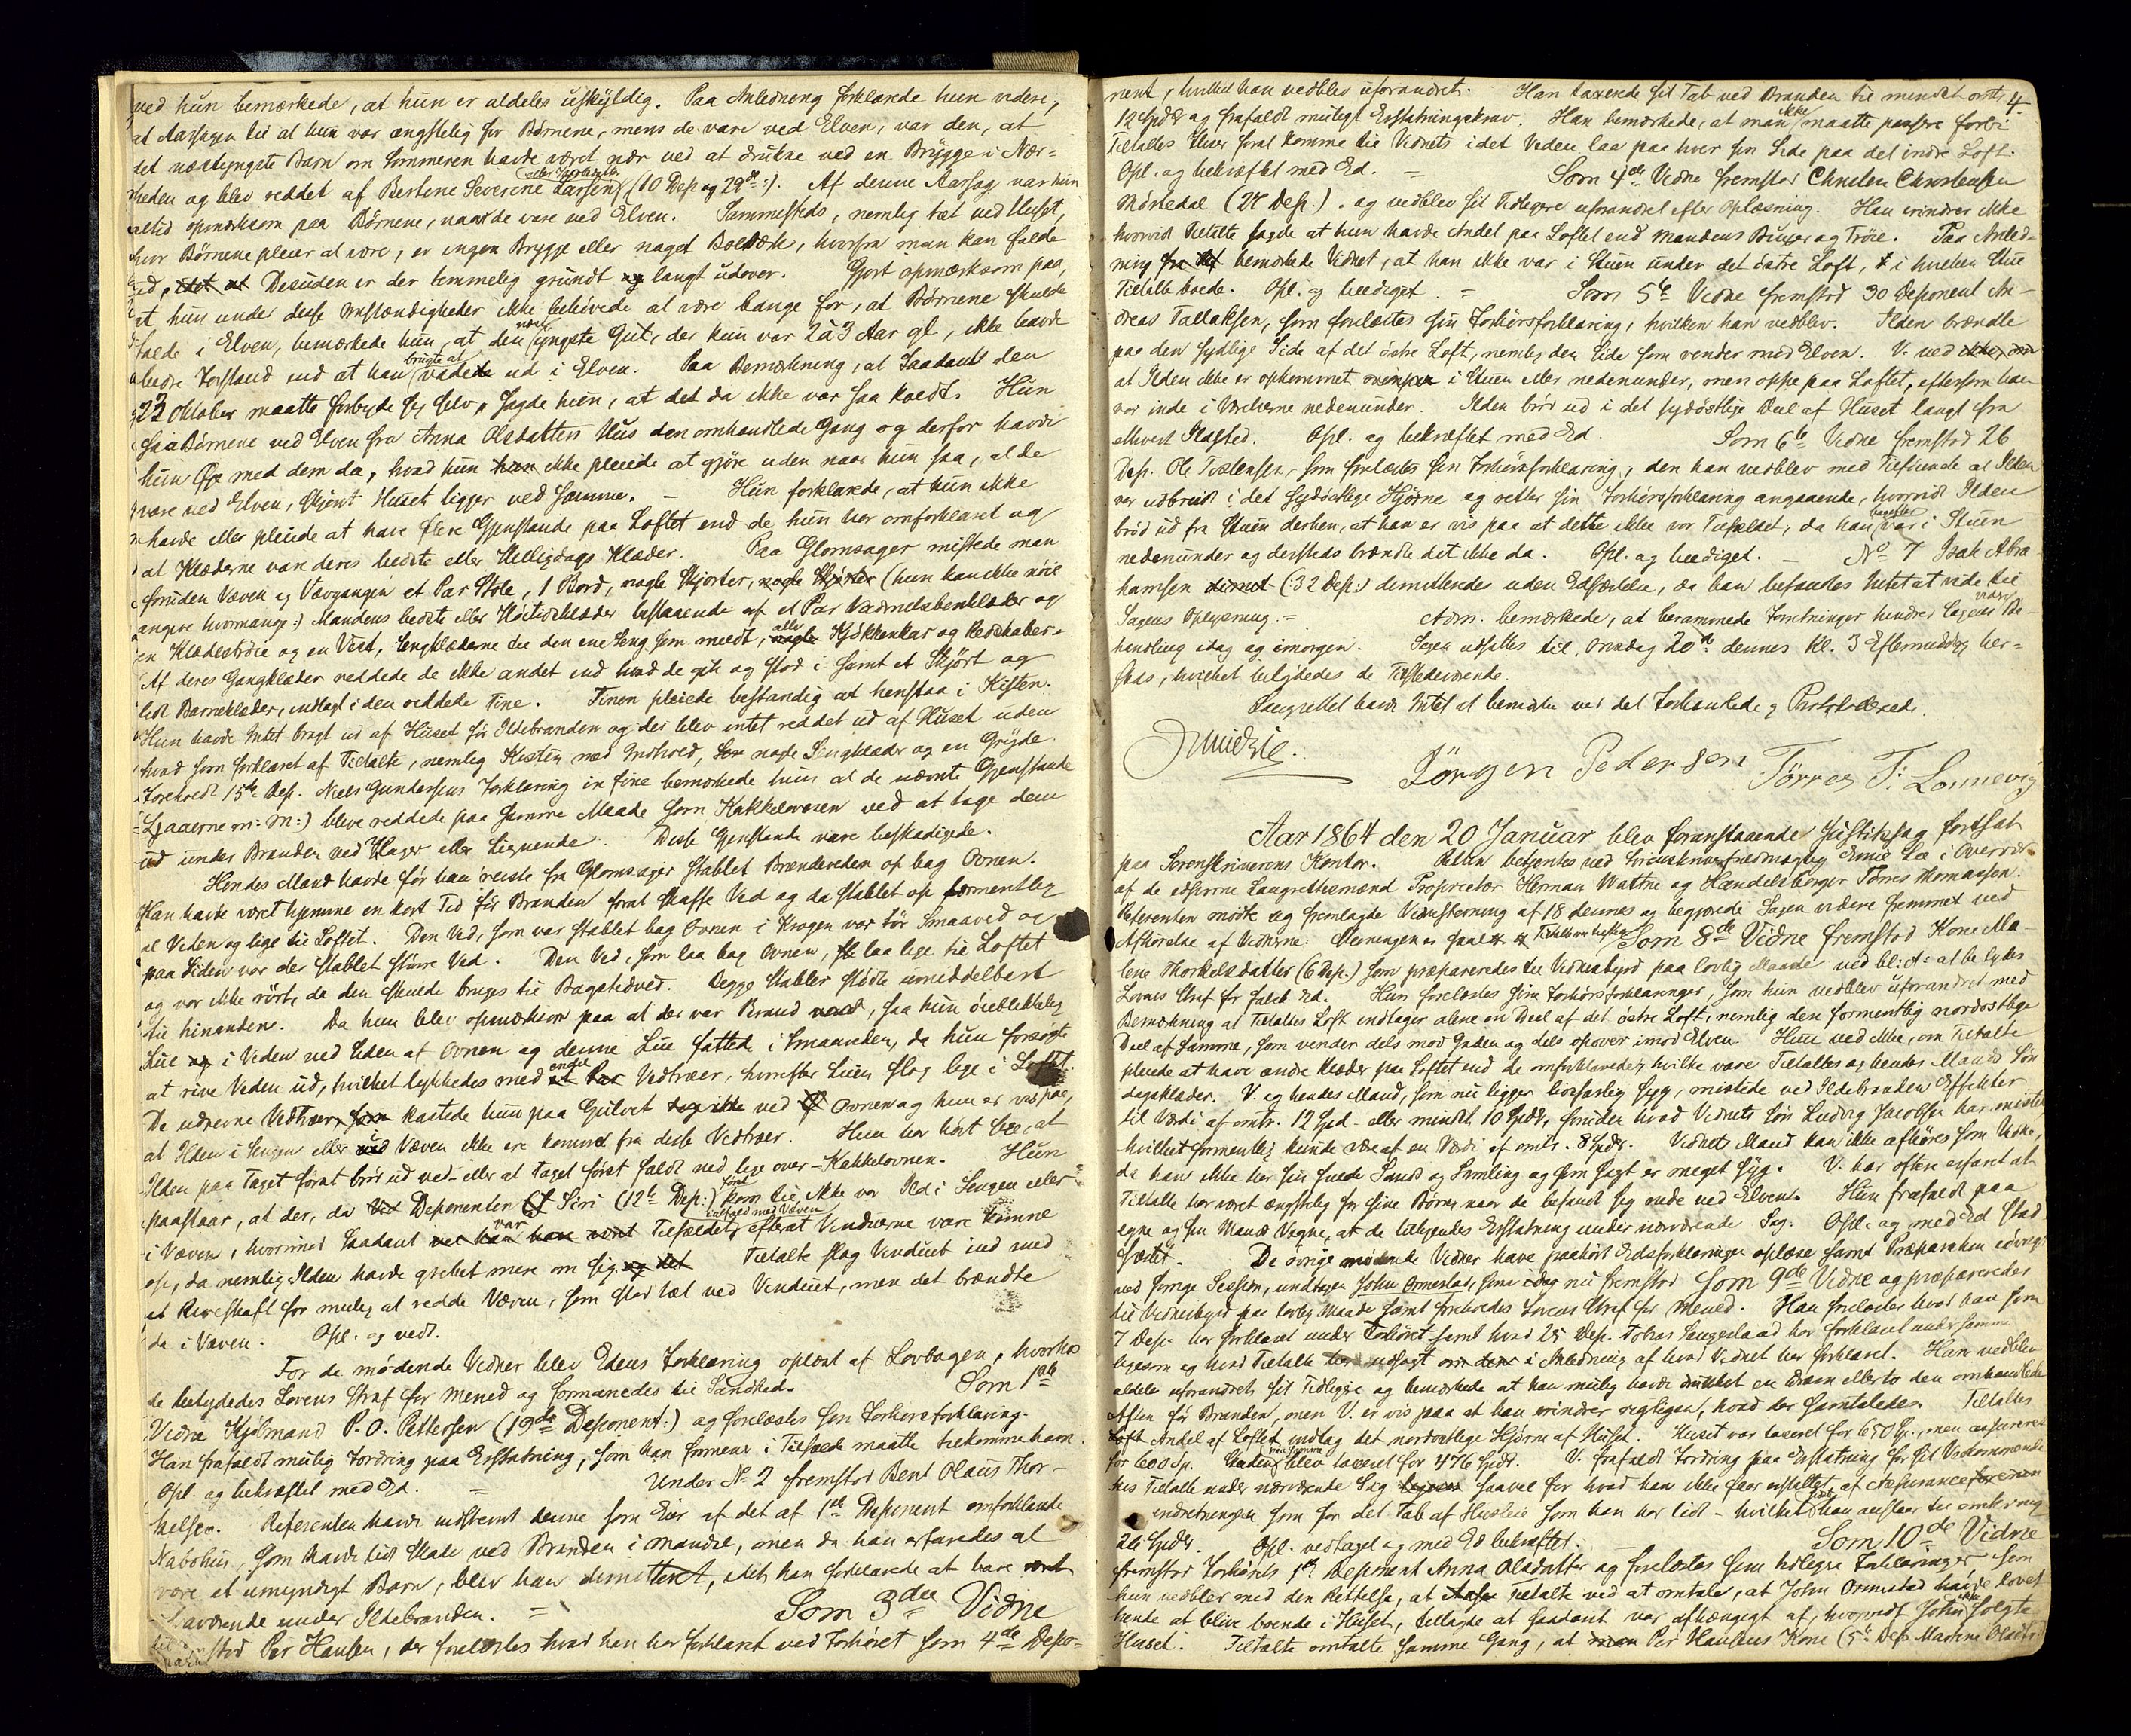 ved hun bemærkede, at hun er aldeles uskyldig. Paa Anledning forklarede hun videre,
at Aarsagen til at hun var ængstelig for Børnene, mens de vare ved Elven, var den, at
det næstyngste Barn om Sommeren havde været nær ved at drukne ved en Brygge i Nær-
heden og blev reddet af Bertine Severine Larsen (10 Dep og 29de:). Af denne Aarsag var hun
altid opmærksom paa Børnene, naar de vare ved Elven. Sammesteds, nemlig tæt ved Huset,
hvor Børnene pleier at være, er ingen Brygge eller noget Bolværk, hvorfra man kan falde
ud, idet at Desuden er der temmelig grundt og langt udover. Gjort opmærksom paa,
at hun under disse Omstændigheder ikke behøvede at være bange for, at Børnene skulde
falde i Elven, bemærkede hun, at den næst yngste Gut, der kun var 2 à 3 Aar gl, ikke havde
bedre Forstand end at han brugte at vade ud i Elven. Paa Bemærkning, at Saadant den
22 Oktober maatte forbyde sig selv, sagde hun, at det da ikke var saa koldt. Hun
saa Børnene ved Elven fra Anna Olsdatters Hus den omhandlede Gang og derfor havde
hun Øie med dem da, hvad hun han ikke pleiede at gjøre uden naar hun saa, at de
vare ved Elven, skjønt Huset ligger ved samme. – Hun forklarede, at hun ikke
havde eller pleiede at have flere Gjenstande paa Loftet end de hun har omforklaret og
at Klæderne var deres bedste eller Helligdags Klæder. Paa Glomsager mistede man
foruden Væven og Vævgangen et Par Stole, 1 Bord, nogle Skjorter, nogle Skjorter (hun kan ikke nøie
angive hvormange:) Mandens bedste eller Høitidsklæder bestaaende af et Par Vadmelsbenklæder og
en Klædestrøie og en Vest, Sengklæderne til den ene Seng som meldt, nogle alle Kjøkkenkar og Redskaber.
Af deres Gangklæder reddede de ikke andet end hvad de gik og stod i samt et Skjørt og
lidt Barneklæder, indlagt i den reddede Tine. Tinen pleiede bestandig at henstaa i Kisten.
Hun havde Intet bragt ud af Huset før Ildebranden og der blev intet reddet ud af Huset uden
hvad som forklaret af Tiltalte, nemlig Kisten med Indhold, nogle Sengklæder og en Gryde.
Foreholdt 15de Dep. Niels Gundersens Forklaring in fine bemærkede hun at de nævnte Gjenstande
Ljaaerne m: m:) bleve reddede paa samme Maade som Kakkelovnen ved at tage dem
ud under Branden ved Hager eller Lignende. Disse Gjenstande vare beskadigede.
Hendes Mand havde før han reiste fra Glomsager stablet Brændeveden op bag Ovnen.
Han havde været hjemme en kort Tid før Branden forat skaffe Ved og da stablet op formentlig
al Veden og lige til Loftet. Den Ved, som var stablet bag Ovnen i Krogen var tør Smaaved og
paa Siden var der stablet større Ved. Den Ved, som laa bag Ovnen, laa lige til Loftet
og var ikke rørt, da den skulde bruges til Bagstedved. Begge Stabler stødte umiddelbart
til hinanden. Da hun blev opmærksom paa at der var Brand, saa hun øieblikkelig
Lue og i Veden ved Siden af Ovnen og denne Lue fattede i Smaaveden, da hun forsøgte
at rive Veden ud, hvilket lykkedes med et Par Vedtræer, hvorefter Luen slog lige i Loftet.
De udrevne Vedtræer, som kastede hun paa Gulvet ved Ovnen og hun er vis paa,
at Ilden i Sengen eller ved Væven ikke er kommet fra disse Vedtræer. Hun har hørt sige, at
Ilden paa Taget først brød ud ved – eller at Taget først faldt ned lige over – Kakkelovnen. Hun
paastaar, at der, da Deponenten Siri (12te Dep:) først kom til, ikke var Ild i Sengen eller
i Væven, hvorimod Saadant var Tilfældet ialfald med Væven efterat Vinduerne vare komne
op, da nemlig Ilden havde grebet mere om sig. Tiltalte slog Vinduet ind med
et Riveskaft for mulig at redde Væven, som stod tæt ved Vinduet, men det brændte
da i Væven. Opl. og vedt.
For de mødende Vidner blev Edens Forklaring oplæst af Lovbogen, hvorhos
de betydedes Lovens Straf for Mened og formanedes til Sandhed. Som 1ste
Vidne Kjøbmand P. O. Pettersen (19de Deponent:) og forelæstes sin Forhørsforklaring.
Han frafaldt mulig Fordring paa Erstatning, som han formener i Tilfælde maatte tilkomme ham.
Opl. og bekræftet med Ed. = Under No 2 fremstod Bent Olaus Thor-
kelsen. Referenten havde indstevnt denne som Eier af det af 1ste Deponent omforklarede
Nabohus, som havde lidt Skade ved Branden i Mandal, men da han erfaredes at
være et umyndigt Barn, blev han dimitteret, idet han forklarede at have været
fraværende under Ildebranden. = Som 3die Vidne
fremstod Per Hansen, der forelæstes hvad han har forklaret ved Forhøret som 4de Depo-
4
nent, hvilket han vedblev uforandret. Han taxerede sit Tab ved Branden til mindst omtr.
12 Spdlr og frafaldt muligt Erstatningskrav. Han bemærkede, at man ikke maatte passere forbi
Tiltaltes Huus forat komme til Vidnets idet Veden laa paa hver sin Side paa det indre Loft.
Opl. og bekræftet med Ed. = Som 4de Vidne fremstod Christen Christensen
Mørledal (28 Dep.). og vedblev sit Tidligere uforandret efter Oplæsning. Han erindrer ikke
hvorvidt Tiltalte sagde at hun havde Andet paa Loftet end Mandens Buxer og Trøie. Paa Anled-
ning bemærkede Vidnet, at han ikke var i Stuen under det østre Loft, i hvilken Stue
Tiltalte boede. Opl. og beediget. = Som 5te Vidne fremstod 30 Deponent An-
dreas Tallaksen, som forelæstes sin Forhørsforklaring, hvilken han vedblev. Ilden brændte
paa den sydlige Side af det østre Loft, nemlig den Side som vender mod Elven. V. ved
at Ilden ikke er opkommet i Stuen eller nedenunder, men oppe paa Loftet, eftersom han
var inde i Værelserne nedenunder. Ilden brød ud i det sydøstlige Deel af Huset langt fra
ethvert Ildsted. Opl. og bekræftet med Ed. Som 6te Vidne fremstod 26
Dep. Ole Tostensen, som forelæstes sin Forhørsforklaring, den han vedblev med Tilføiende at Ilden
var udbrudt i det Sydøstlige Hjørne og retter sin Forhørsforklaring angaaende, hvorvidt Ilden
brød ud fra Stuen derhen, at han er vis paa at dette ikke var Tilfældet, da han var i Stuen
nedenunder og dersteds brændte det ikke da. Opl. og beediget. – No 7 Isak Abra-
hamsen (32 Dep:) dimitteredes uden Edfæstelse, da han befandtes Intet at vide til
Sagens Oplysning. = Adm. bemærkede, at berammede Forretninger hindrer Sagens videre Be-
handling idag og imorgen. Sagen udsattes til Onsdag 20de dennes Kl. 3 Eftermiddag her-
steds, hvilket betydedes de Tilstedeværende.
Laugrettet havde Intet at bemærke ved det Forhandlede og Protokollerede.
Jørgen Pedersen Tørres T: Lonnevig
Aar 1864 den 20 Januar blev foranstaaende Justitssag fortsat
paa Sorenskriverens Kontor. Retten betjentes ved Sorenskriverfuldmægtig Smidt i Overvær
af de edsvorne Laugrettesmænd Proprietær Herman Wattne og Handelsborger Tørres Thomassen.
Referenten mødte og fremlagde Vidnestevning af 18 dennes og begjærede Sagen videre fremmet ved
Afhørelse af Vidnerne. Stevningen er saal. Som 8de Vidne fremstod Kone Ma-
lene Thorkelsdatter (6 Dep.) som præpareredes til Vidnesbyrd paa lovlig Maade ved bl: A: at betydes
Lovens Straf for falsk Ed. Hun forelæstes sine Forhørsforklaringer, som hun vedblev uforandret med
Bemærkning at Tiltaltes Loft indtager alene en Deel af det østre Loft, nemlig den formentlig nordostlige
Deel af samme, som vender dels mod Gaden og dels opover imod Elven. Hun ved ikke, om Tiltalte
pleiede at have andre Klæder paa Loftet end de omforklarede, hvilke vare Tiltaltes og hendes Mands Søn-
dagsklæder. V. og hendes Mand, som nu ligger livsfarlig syg, mistede ved Ildebranden Effekter
til Værdi af omtr. 12 Spd – eller mindst 10 Spdlr, foruden hvad Vidnets Søn Ludvig Jacobsen har mistet
hvilket formentlig kunde være af en Værdi af omtr. 8 Spdlr. Vidnets Mand kan ikke afhøres som Vidne,
da han ikke har sin fulde Sands og Samling og som sagt er meget syg. V. har ofte erfaret at
Tiltalte har været ængstelig for sine Børn, naar de befandt sig nede ved Elven. Hun frafaldt paa
egne og sin Mands Vegne, at de tilkjendes Erstatning under nærværende Sag. Opl. og med Ed stad-
fæstet. De øvrige mødende Vidner have paahørt Edsforklaringen oplæse samt Præparation
ved forrige Session, undtagen John Ormestad, som nu fremstod som 9de Vidne og præpareredes
til Vidnesbyrd paa lovlig Maade samt foreholdtes Lovens Straf for Mened. Han forelæstes hvad han som
7 Dep. har forklaret under Forhøret samt hvad 25 Dep. Tobias Saugeslaad har forklaret under samme
ligesom og hvad Tiltalte udsagt i Anledning af hvad Vidnet har forklaret. Han vedblev
aldeles uforandret sit Tidligere og bemærkede at han mulig havde drukket en Dram eller to den omhandlede
Aften før Branden, men V. er vis paa at han erindrer rigtigen, hvad der samtaledes. Tiltaltes
Loft Andel af Loftet indtog det nordostlige Hjørne af Huset. Huset var taxeret for 650 Sp., men assureret
for 600 Sp. Skaden blev taxeret for 476 Spdlr. V. frafaldt Fordring paa Erstatning for sit Vedkommende
hos Tiltalte under nærværende Sag saavel for hvad han ikke faar erstattet af Assurance
indretningen som for det Tab af Husleie som han har lidt – hvilket han anslaar til omkring
26 Spdlr. Opl. vedtaget og med Ed bekræftet. – Som 10de Vidne
fremstod Forhørets 1ste Deponent Anna Olsdatter og forelæstes sine tidligere Forklaringer som
hun vedblev med den Rettelse, at Tiltalte ved at omtale, at John Ormestad havde lovet
hende at blive boende i Huset, tillagde at saadant var afhængigt af, hvorvidt John ikke solgte
Huset. Tiltalte omtalte samme Gang, at Per Hansens Kone (5te Dep. Martine Olsdtr)